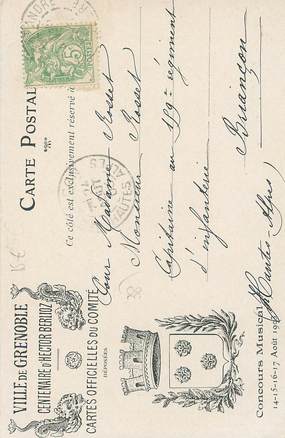 CARTE POSTALE
Ce côté est exclusivement réservé à
Pour Madame Rosset
Monsieur Rosset
Capitaine au 159e régiment
d'infanterie
Briançon
Hautes-Alpes
VILLE DE GRENOBLE
CENTENAIRE D'HECTOR BERLIOZ
CARTES OFFICIELLES DU COMITÉ
DÉPOSÉES
Concours Musical
14-15-16-17 Août 190
5
HAUTES ALPES